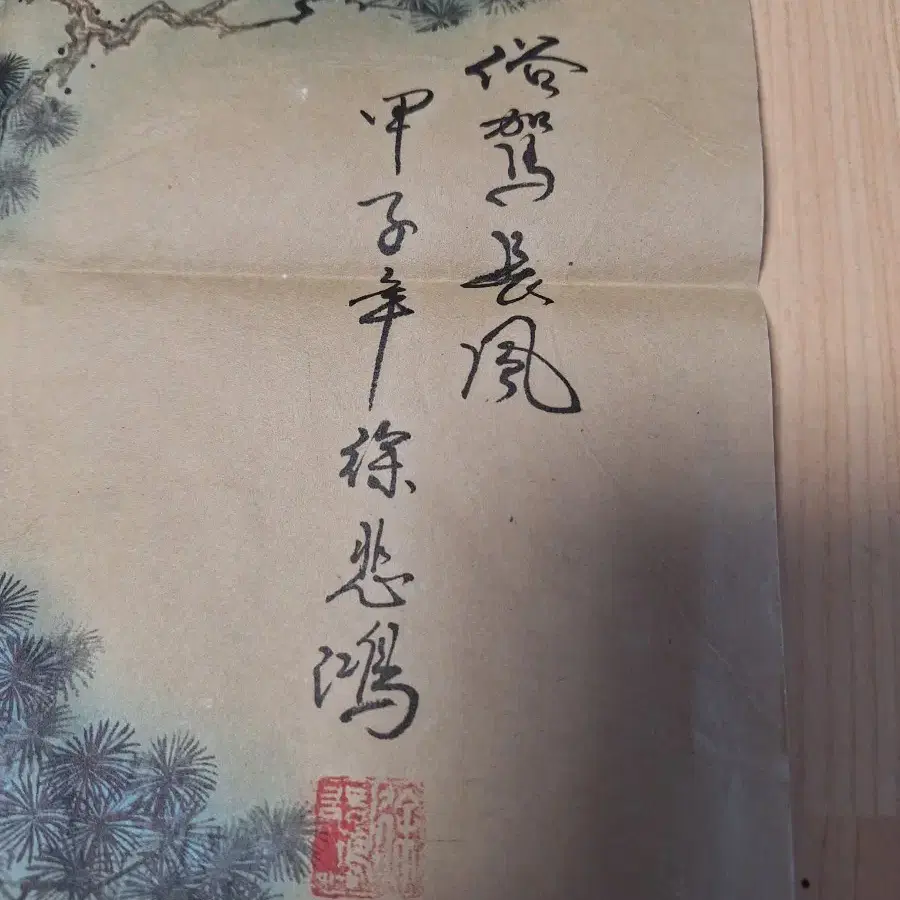 俗駕長風
甲子年徐悲鴻